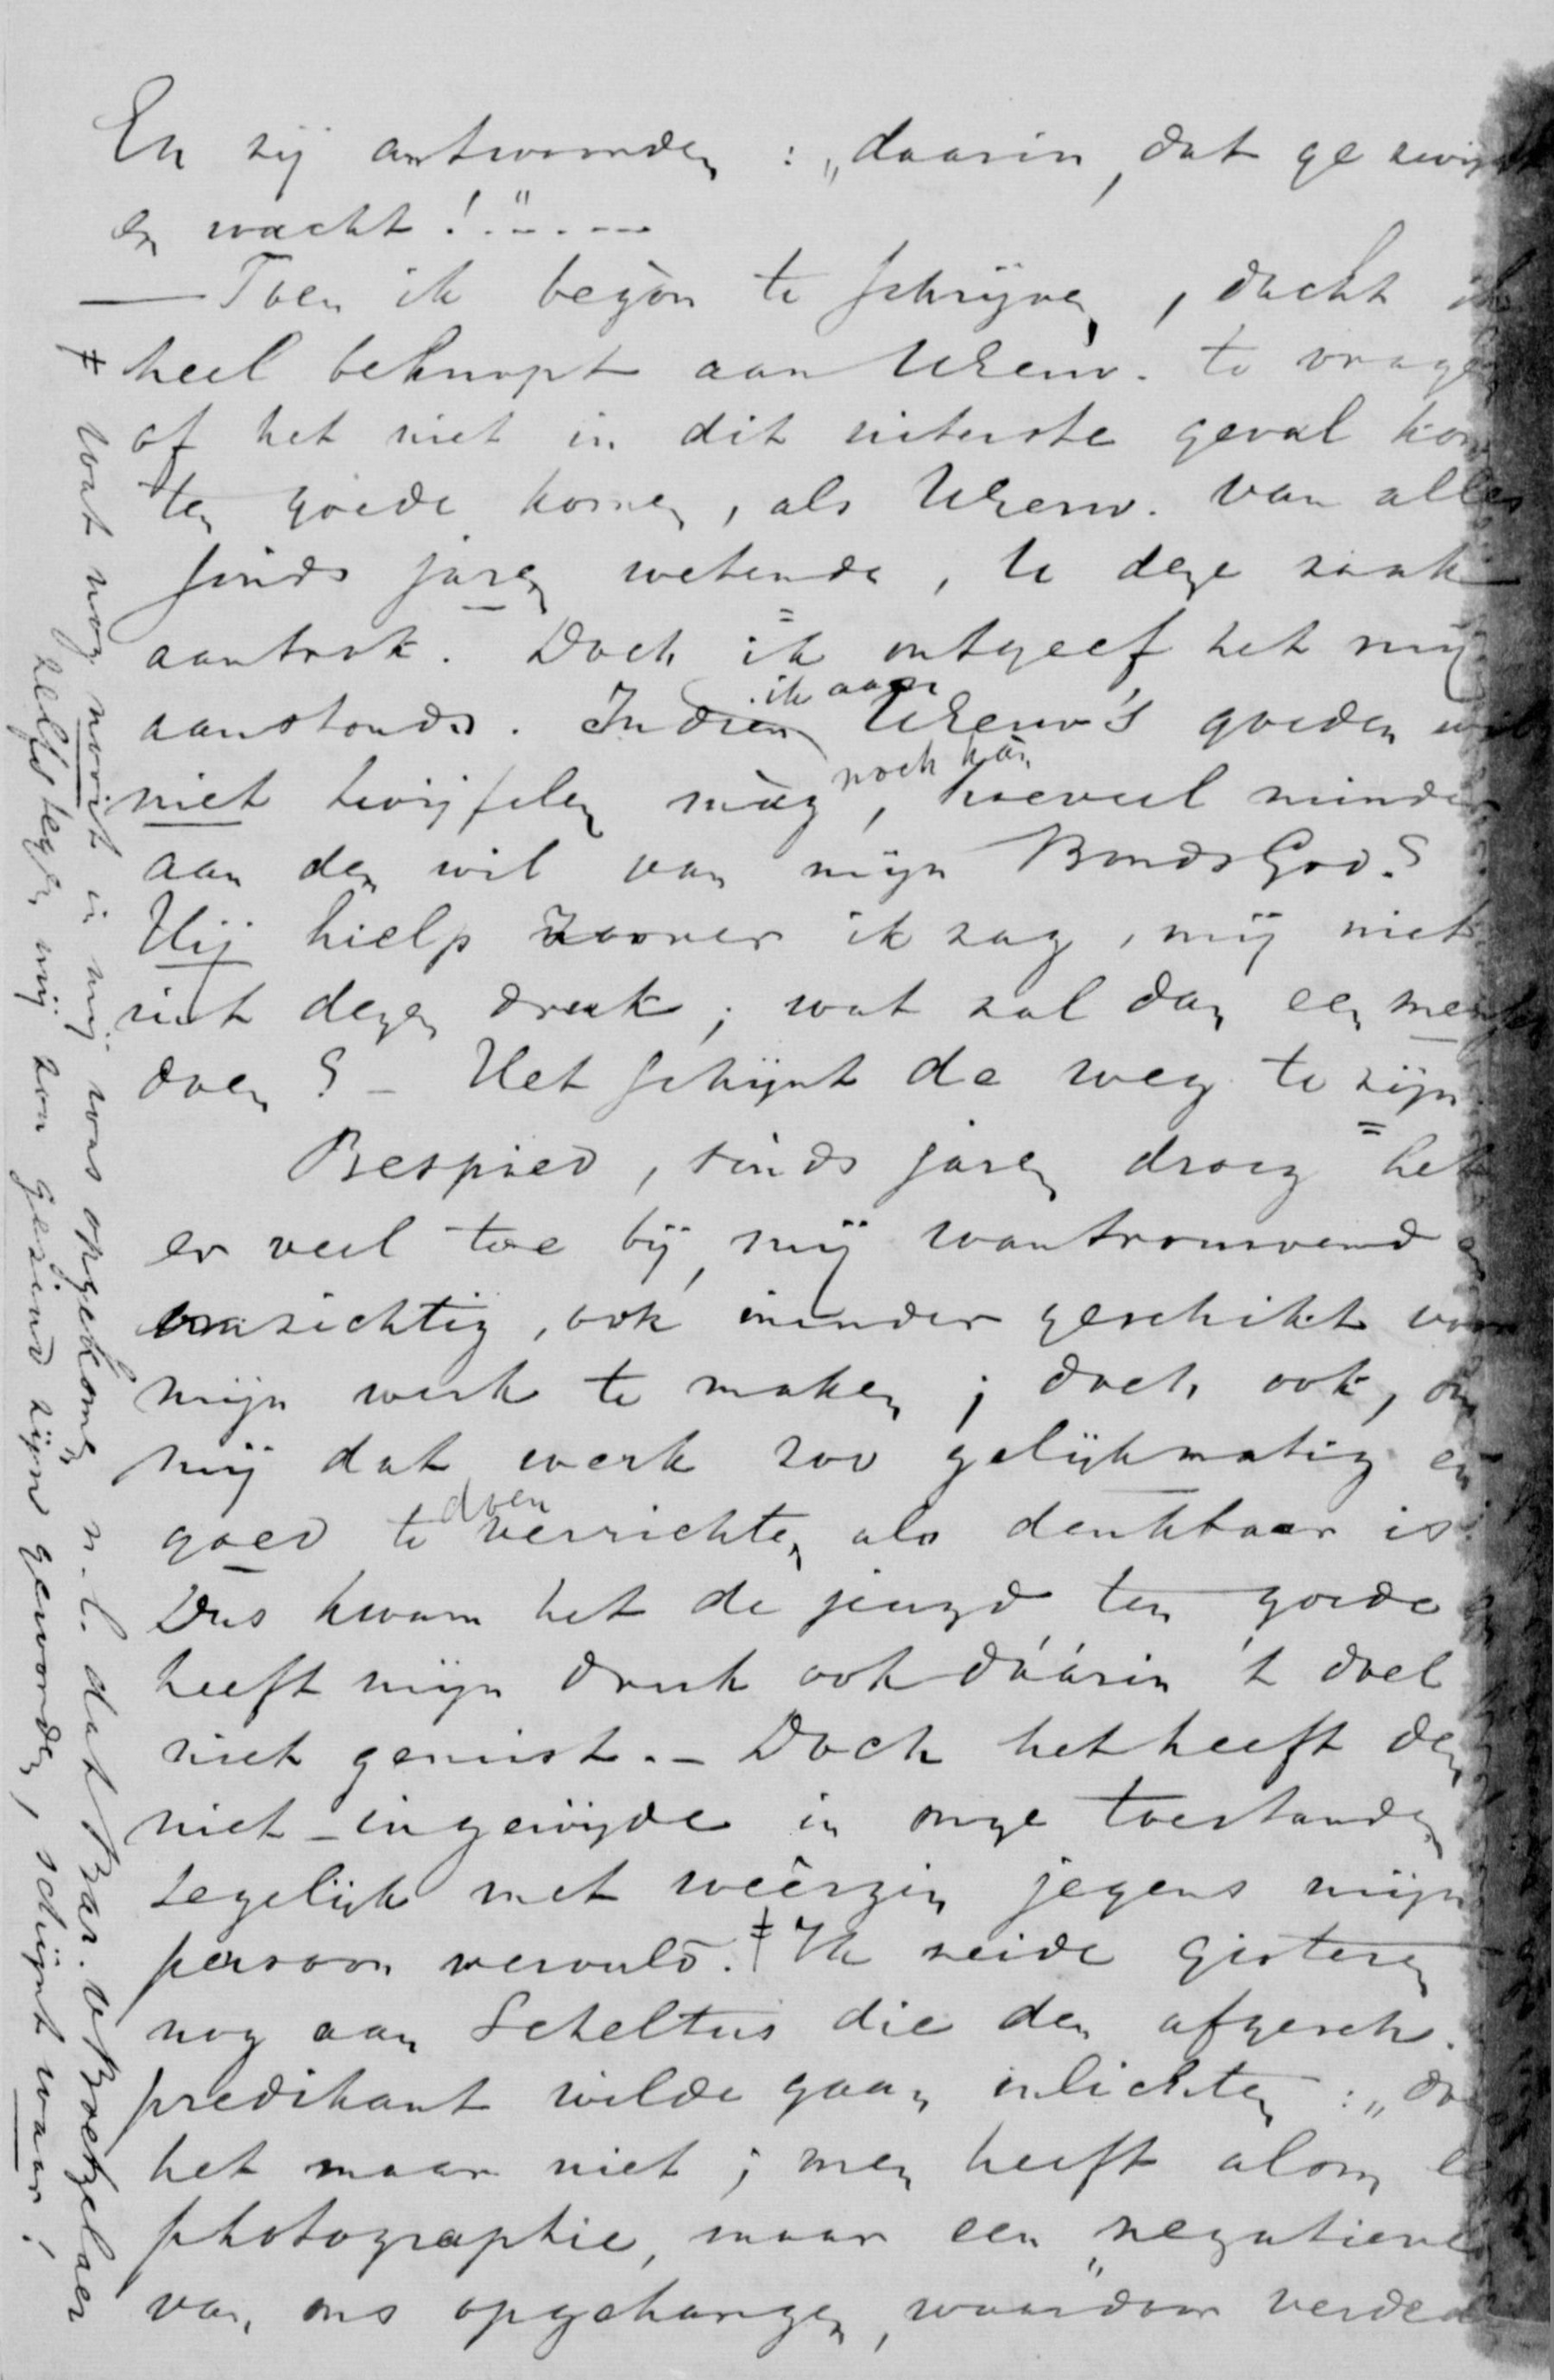 En zij antwoorden : „daarin, dat ge zwijgt
en wacht!" . - . - - -
— Toen ik begòn te schrijven, dacht ik
heel beknopt aan UEerw. te vragen
of het niet in dit uiterste geval kon
ten goede komen, als UEerw. van alles
sinds jaren wetende, U deze zaak
aantrok. Doch ik ontgeef het mij
aanstonds. Indien ik aan UEerw's goeden wil
niet twijfelen màg, noch kàn, hoeveel minder
aan den wil van mijn BondsGod?
Hij hielp zoover ik zag, mij niet
uit dezen druk; wat zal dan een mensch
doen? – Het schijnt de weg te zijn.
Bespied, sinds jaren droeg het
er veel toe bij, mij wantrouwend en
omzichtig, ook minder geschikt voor
mijn werk te maken; doch ook, om
mij dat werk zoo gelijkmatig en
goed te doen verrichten als denkbaar is.
Dus kwam het de jeugd ten goede en
heeft mijn druk ook dáárin 't doel
niet gemist. – Doch het heeft den
niet-ingewijde in onze toestanden
tegelijk met weêrzin jegens mijn
persoon vervuld. ‡ Ik zeide gisteren
nog aan Scheltus die den afgesch.
predikant wilde gaan inlichten : „doe
het maar niet; men heeft alom een
photographie, maar een „negatieve
van ons opgehangen, waardoor
‡ wat nog nooit in mij was opgekomen n.l. dat Bar. v Boetzelaer
zelfs tegen mij zou gezind zijn geworden, schijnt waar!